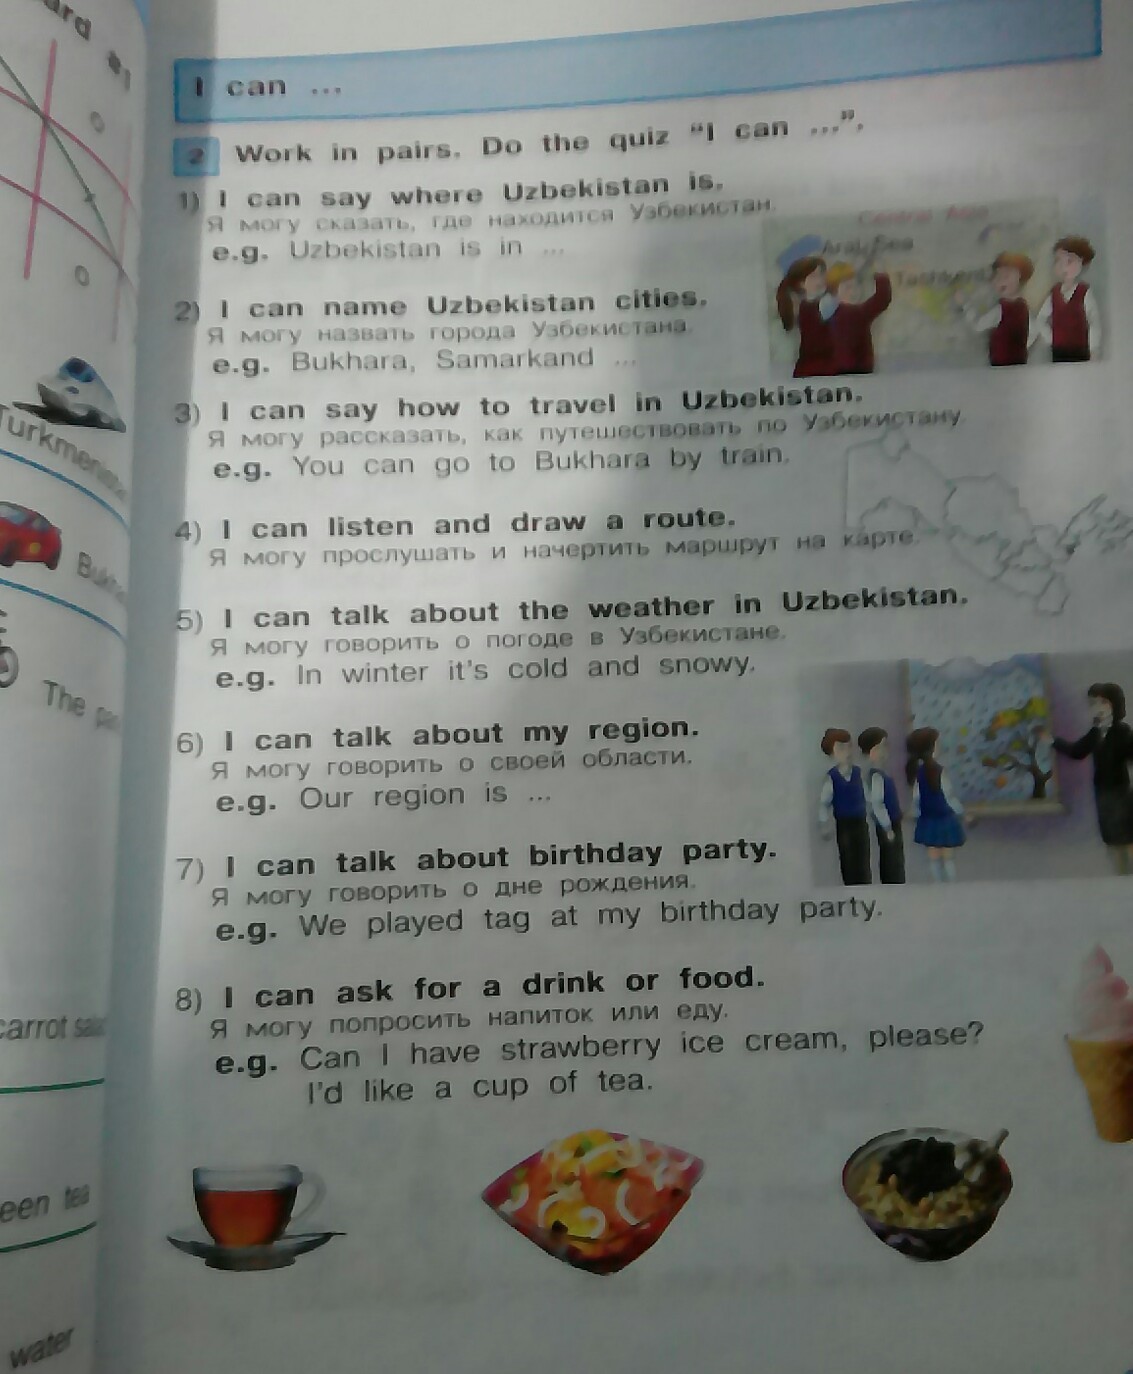 I can ...
2 Work in pairs. Do the quiz “I can ...”.
1) I can say where Uzbekistan is.
Я могу сказать, где находится Узбекистан.
e.g. Uzbekistan is in ...
Central Asia
Aral Sea
Tashkent
2) I can name Uzbekistan cities.
Я могу назвать города Узбекистана.
e.g. Bukhara, Samarkand ...
3) I can say how to travel in Uzbekistan.
Я могу рассказать, как путешествовать по Узбекистану.
e.g. You can go to Bukhara by train.
4) I can listen and draw a route.
Я могу прослушать и начертить маршрут на карте.
5) I can talk about the weather in Uzbekistan.
Я могу говорить о погоде в Узбекистане.
e.g. In winter it's cold and snowy.
6) I can talk about my region.
Я могу говорить о своей области.
e.g. Our region is ...
7) I can talk about birthday party.
Я могу говорить о дне рождения.
e.g. We played tag at my birthday party.
8) I can ask for a drink or food.
Я могу попросить напиток или еду.
e.g. Can I have strawberry ice cream, please?
I’d like a cup of tea.
The
carrot
tea
water